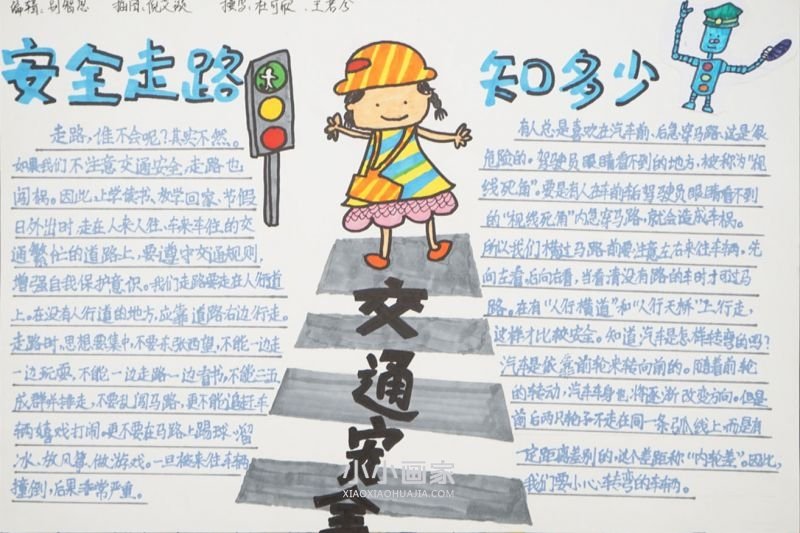 安全走路
走路,谁不会呢?其实不然。
如果我们不注意交通安全,走路也
闯祸。因此,上学读书、放学回家、节假
日外出时,走在人来人往、车来车往的交
通繁忙的道路上,要遵守交通规则,
增强自我保护意识。我们走路要走在人行道
上。在没有人行道的地方,应靠道路右边行走。
走路时,思想要集中,不要东张西望,不能一边走
一边玩耍,不能一边走路一边看书,不能三五
成群并排走,不要乱闯马路,更不能追赶车
辆嬉戏打闹。更不要在马路上踢球、溜
冰、放风筝、做游戏。一旦被来往车辆
撞倒,后果非常严重。
交通安全
知多少
有人总是喜欢在汽车前、后急穿马路,这是很
危险的。驾驶员眼睛看不到的地方,被称为“视
线死角”。要是有人在车前后驾驶员眼睛看不到
的“视线死角”内急穿马路,就会造成车祸。
所以我们横过马路前要注意左右来往车辆。先
向左看,后向右看,当看清没有路的车时才可过马
路。在有“人行横道”和“人行天桥”上行走,
这样才比较安全。知道汽车是怎样转弯的吗?
汽车是依靠前轮来转向前的。随着前轮
的转动,汽车车身也将逐渐改变方向。但是
前后两只轮子不走在同一条弧线上,而是有
一定距离差别的,这个差距称“内轮差”。因此,
我们要小心转弯的车辆。
小小画家
XIAOXIAOHUAJIA.COM